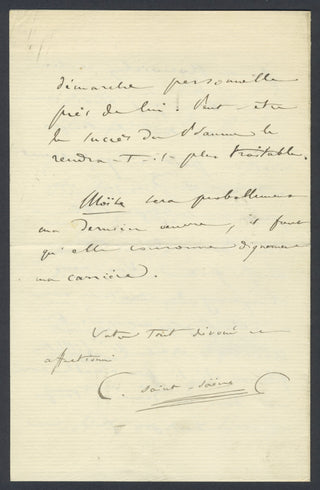 démarche personnelle
près de lui. Peut-être
le succès du
rendra-t-il plus traitable.
Moïse sera probablement
ma dernière œuvre, il faut
qu'elle couronne dignement
ma carrière.
Votre tout dévoué et
affectionné
C. Saint-Saëns